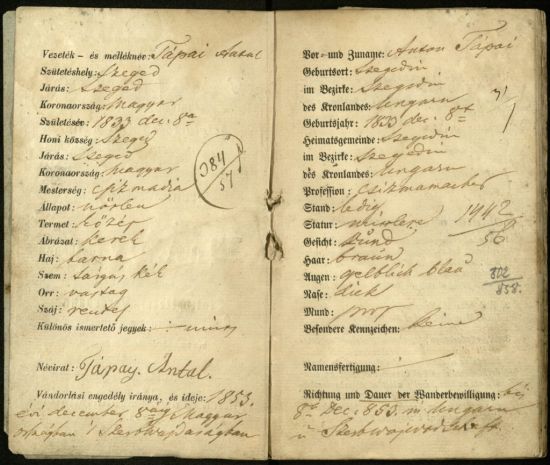 Vezeték- és melléknév: Tápai Antal
Születéshely: Szeged
Járás: Szeged
Koronaország: Magyar
Születésév: 1833 dec. 8a
Honi község: Szeged
Járás: Szeged
Koronaország: Magyar
Mesterség: csizmadia
Állapot: nőtlen
Termet: közép
Ábrázat: kerek
Haj: barna
Szem: sárgás kék
Orr: vastag
Száj: rendes
Különös ismertető jegyek: nincs
Névirat: Tápay Antal.
Vándorlási engedély iránya, és ideje: 1853.
évi december 8áig Magyar
országban 's Szerbvajdaságban
384/57
Vor- und Zuname: Anton Tápai
Geburtsort: Szegedin
im Bezirke: Szegedin
des Kronlandes: Ungarn
Geburtsjahr: 1833 dec. 8t
Heimatsgemeinde: Szegedin
im Bezirke: Szegedin
des Kronlandes: Ungarn
Profession: csizmamacher
Stand: ledig
Statur: mittlere
Gesicht: Rund
Haar: braun
Augen: gelblich blau
Nase: dick
Mund:
Besondere Kennzeichen: keine
Namensfertigung:
Richtung und Dauer der Wanderbewilligung: bis
8t Dec. 853. in Ungarn
u Serbwojwodschaft
1942/56
802/858.